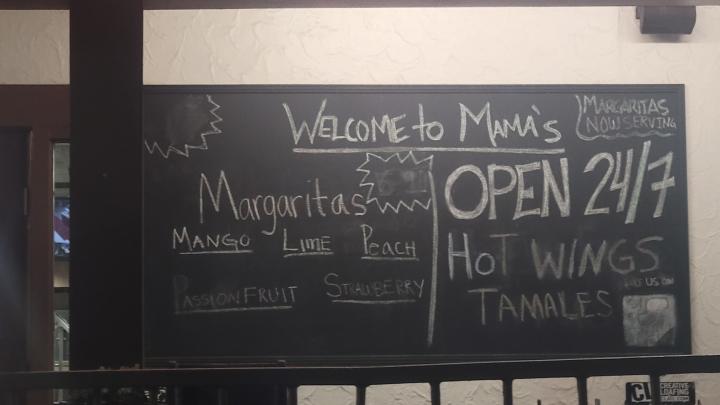 WELCOME to MAMA's
MARGARITAS
NOW SERVING
Margaritas
MANGO LIME PEACH
PASSION FRUIT STRAWBERRY
OPEN 24/7
HOT WINGS
TAMALES
US ON
CL CREATIVE
LOAFING